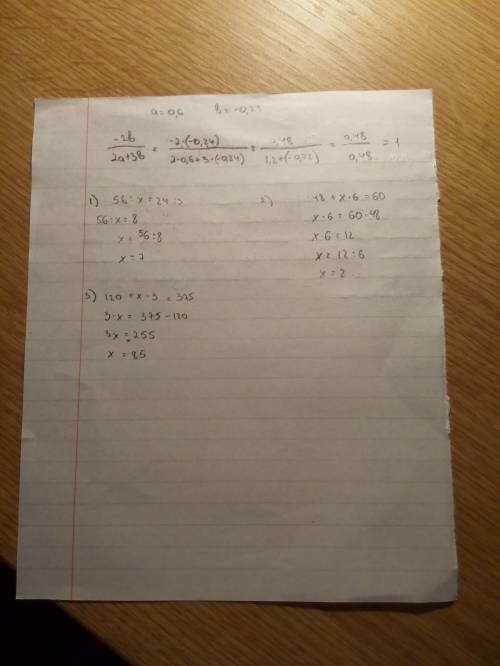 a = 0,6 b = -0,23
-2b / 2a+3b = -2·(-0,24) / 2·0,6+3·(-0,24) = 0,48 / 1,2+(-0,72) = 0,48 / 0,48 = 1
1) 56 : x = 24 : 3
56 : x = 8
x = 56 : 8
x = 7
2) 48 + x · 6 = 60
x · 6 = 60 - 48
x · 6 = 12
x = 12 : 6
x = 2
3) 120 + x · 3 = 375
3 · x = 375 - 120
3x = 255
x = 85